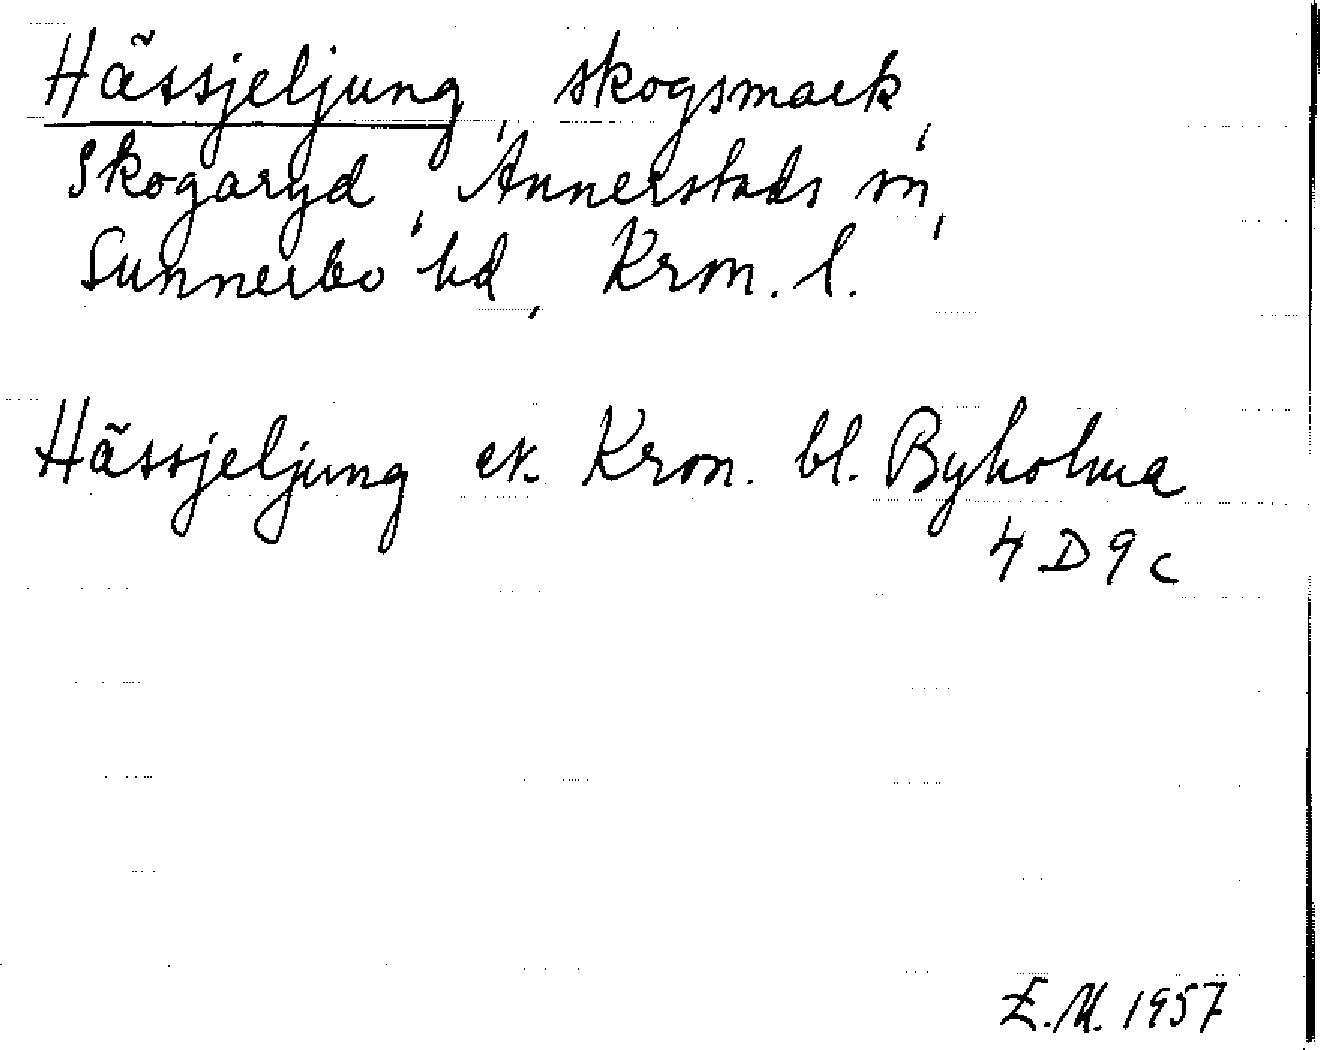 Hässjeljung, skogsmark,
Skogaryd, Annerstads sn,
Sunnerbo hd, Kron. l.
Hässjeljung ek. Kron. bl. Byholma
4 D 9 c
E.M. 1957